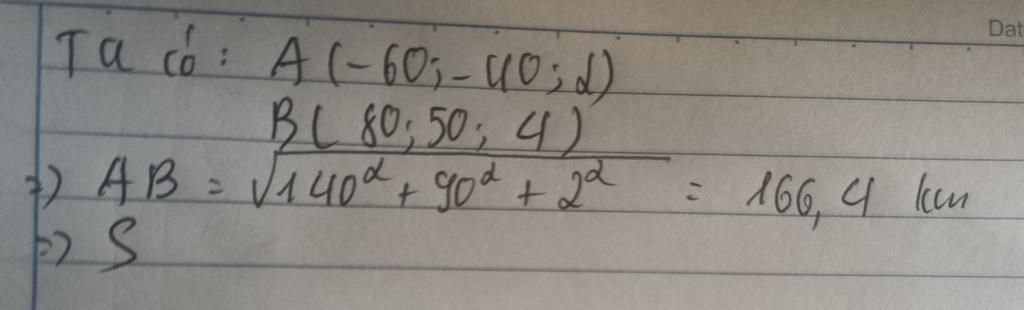 Dat
Ta có: A(-60;-40;2)
B(80;50;4)
=> AB = √140² + 90² + 2² = 166,4 km
=> S